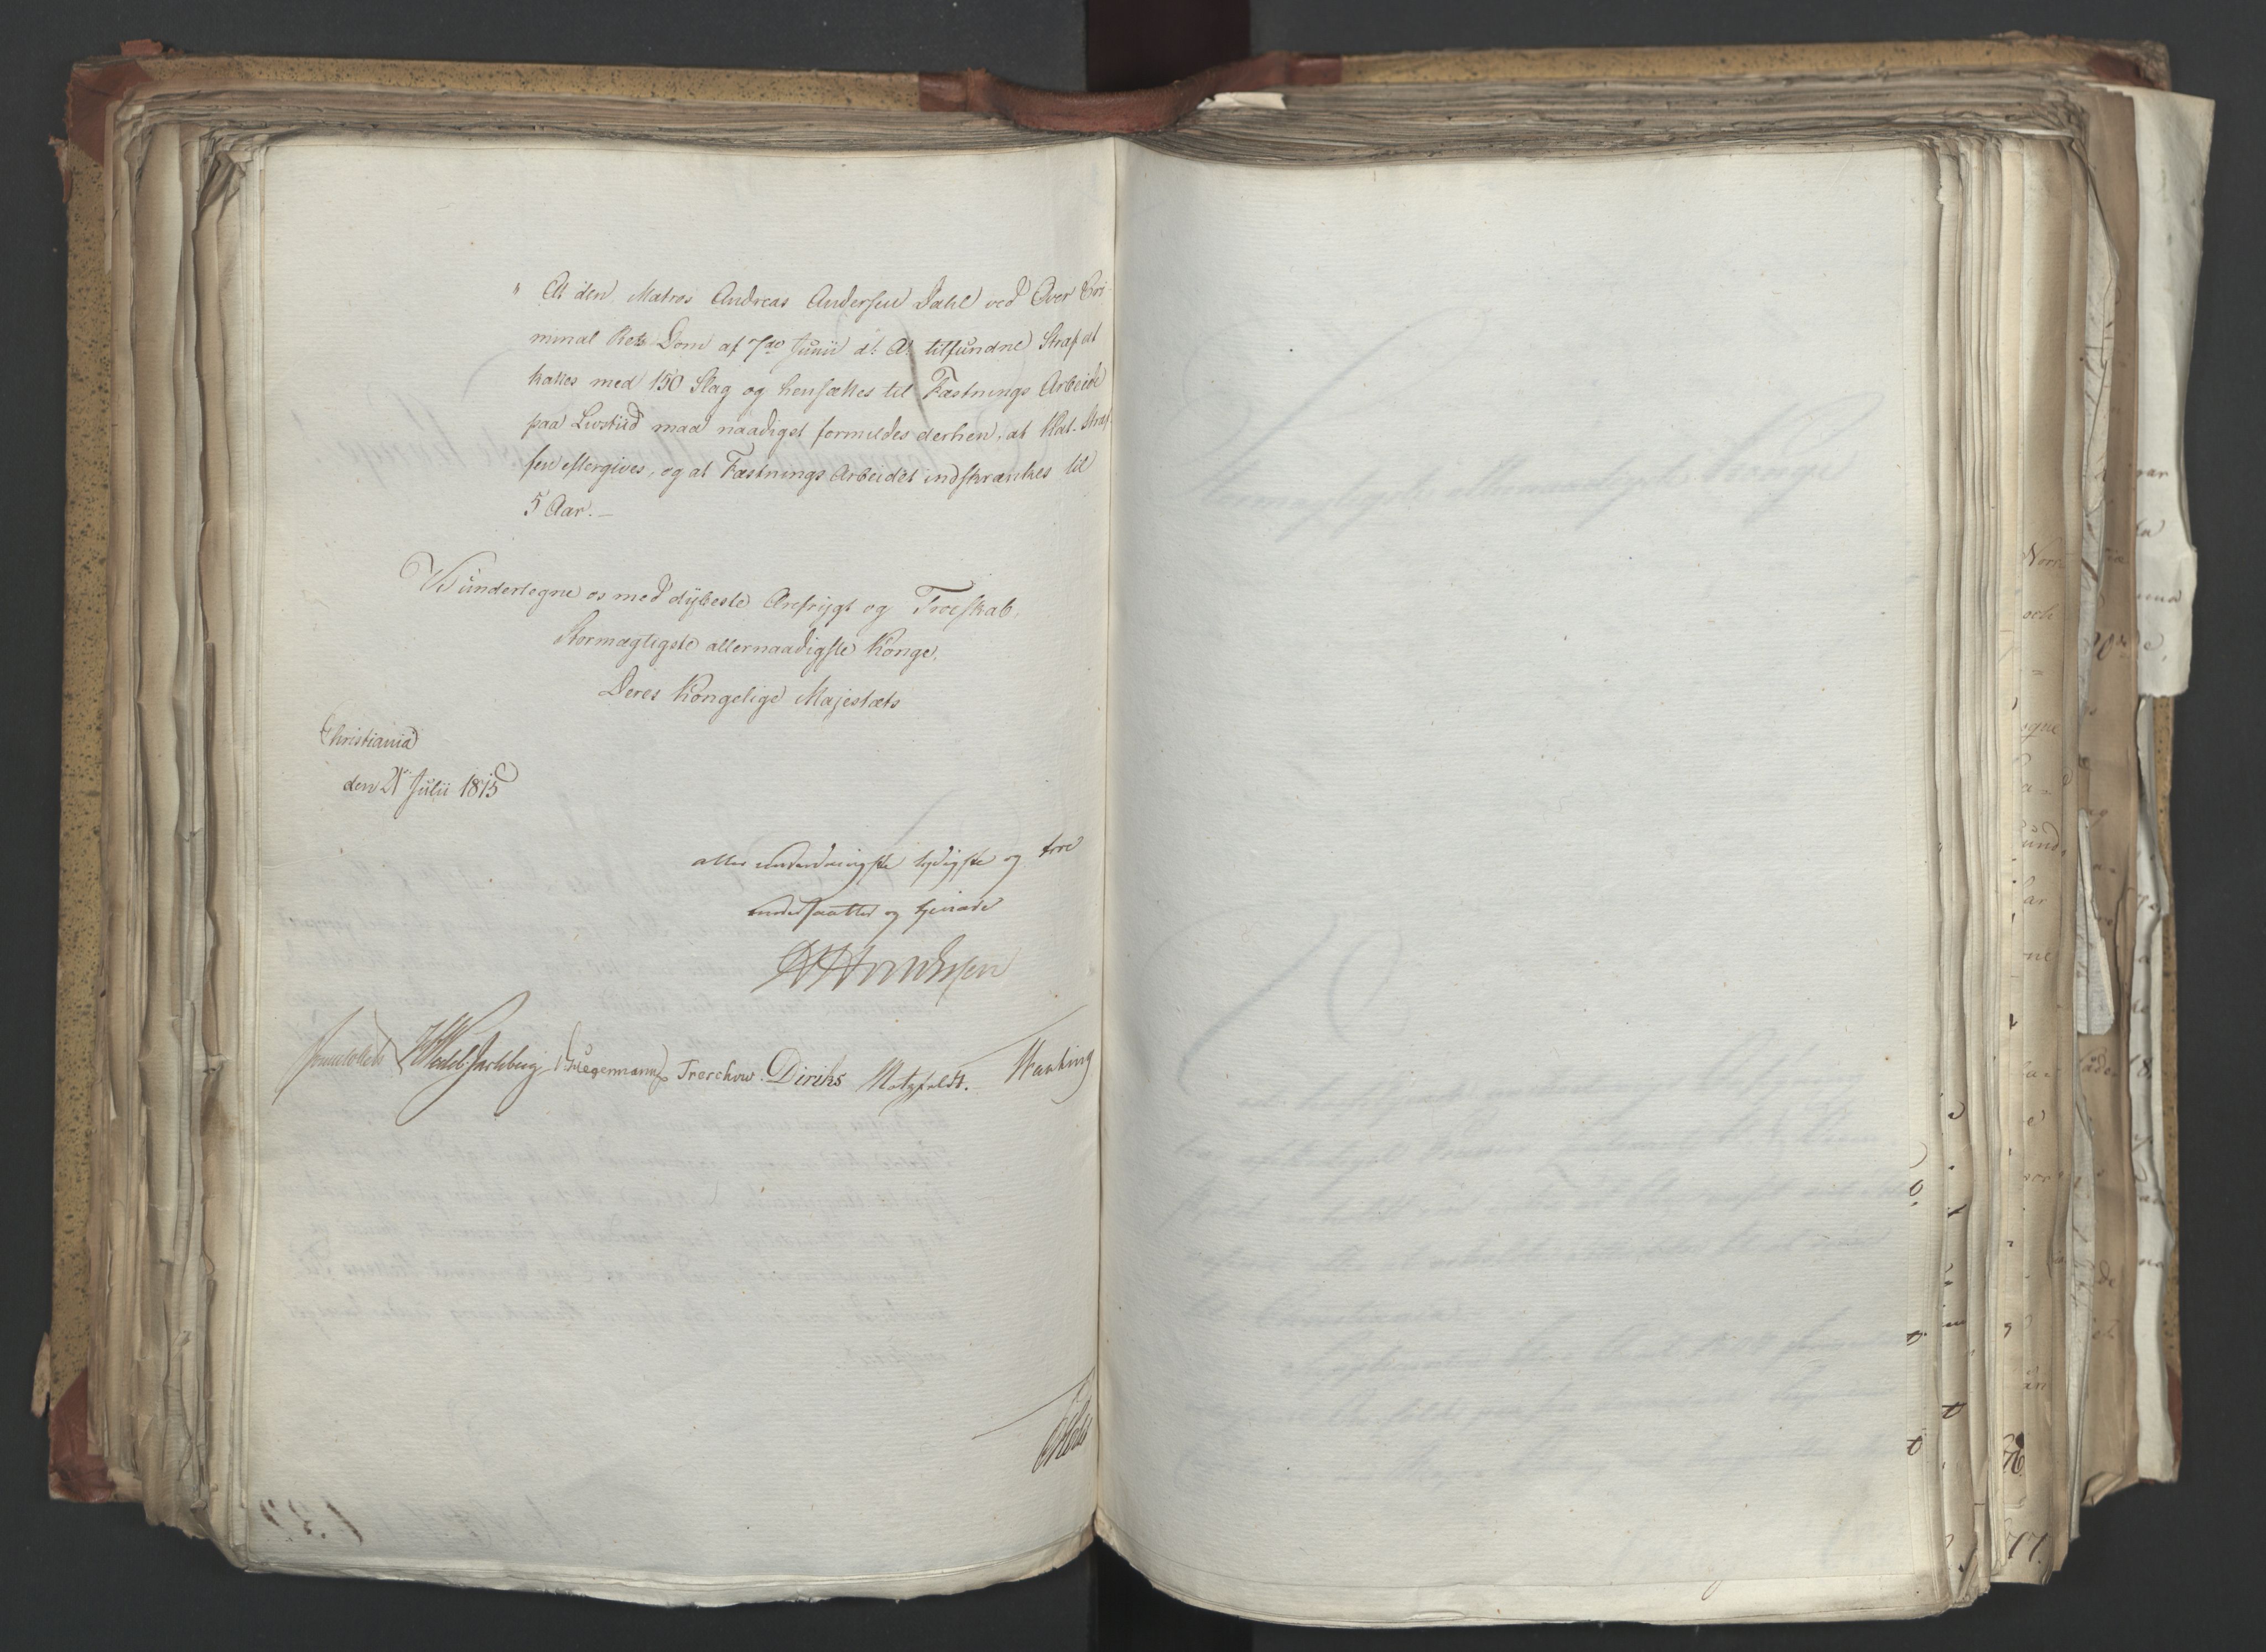 " At den Matros Andreas Andersen Dahl ved Over Cri-
minal Rets Dom af 7de Junii d: A: tilfundne Straf at
kattes med 150 Slag og hensættes til Fæstnings Arbeide
paa Livstiid maa naadigst formildes derhen, at Kat-Straf-
fen eftergives, og at Fæstnings Arbeidet indskrænkes til
5 Aar. —
Vi undertegne os med dybeste Ærefrygt og Troeskab.
Stormægtigste allernaadigste Konge,
Deres Kongelige Majestæts
Christiania
den 21 Julii 1815
allerunderdanigste lydigste og troe
undersaatter og tjenere
Sommerhielm HWedel Jarlsberg D: Hegermann Treschow. Diriks Motzfeldt.